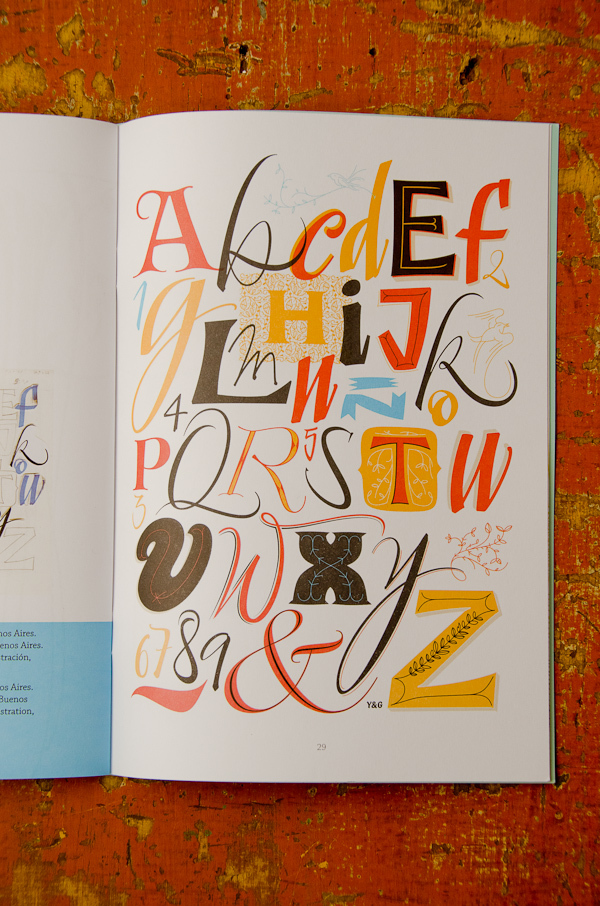 f
k
o
u
y
Z
nos Aires.
uenos Aires.
stración,
os Aires.
Buenos
stration,
A b c d E f 2
1 g H i J k
L m n Ñ o
4 P Q R 5 S T u
3
V W X y Z
6 7 8 9 &
Y&G
29